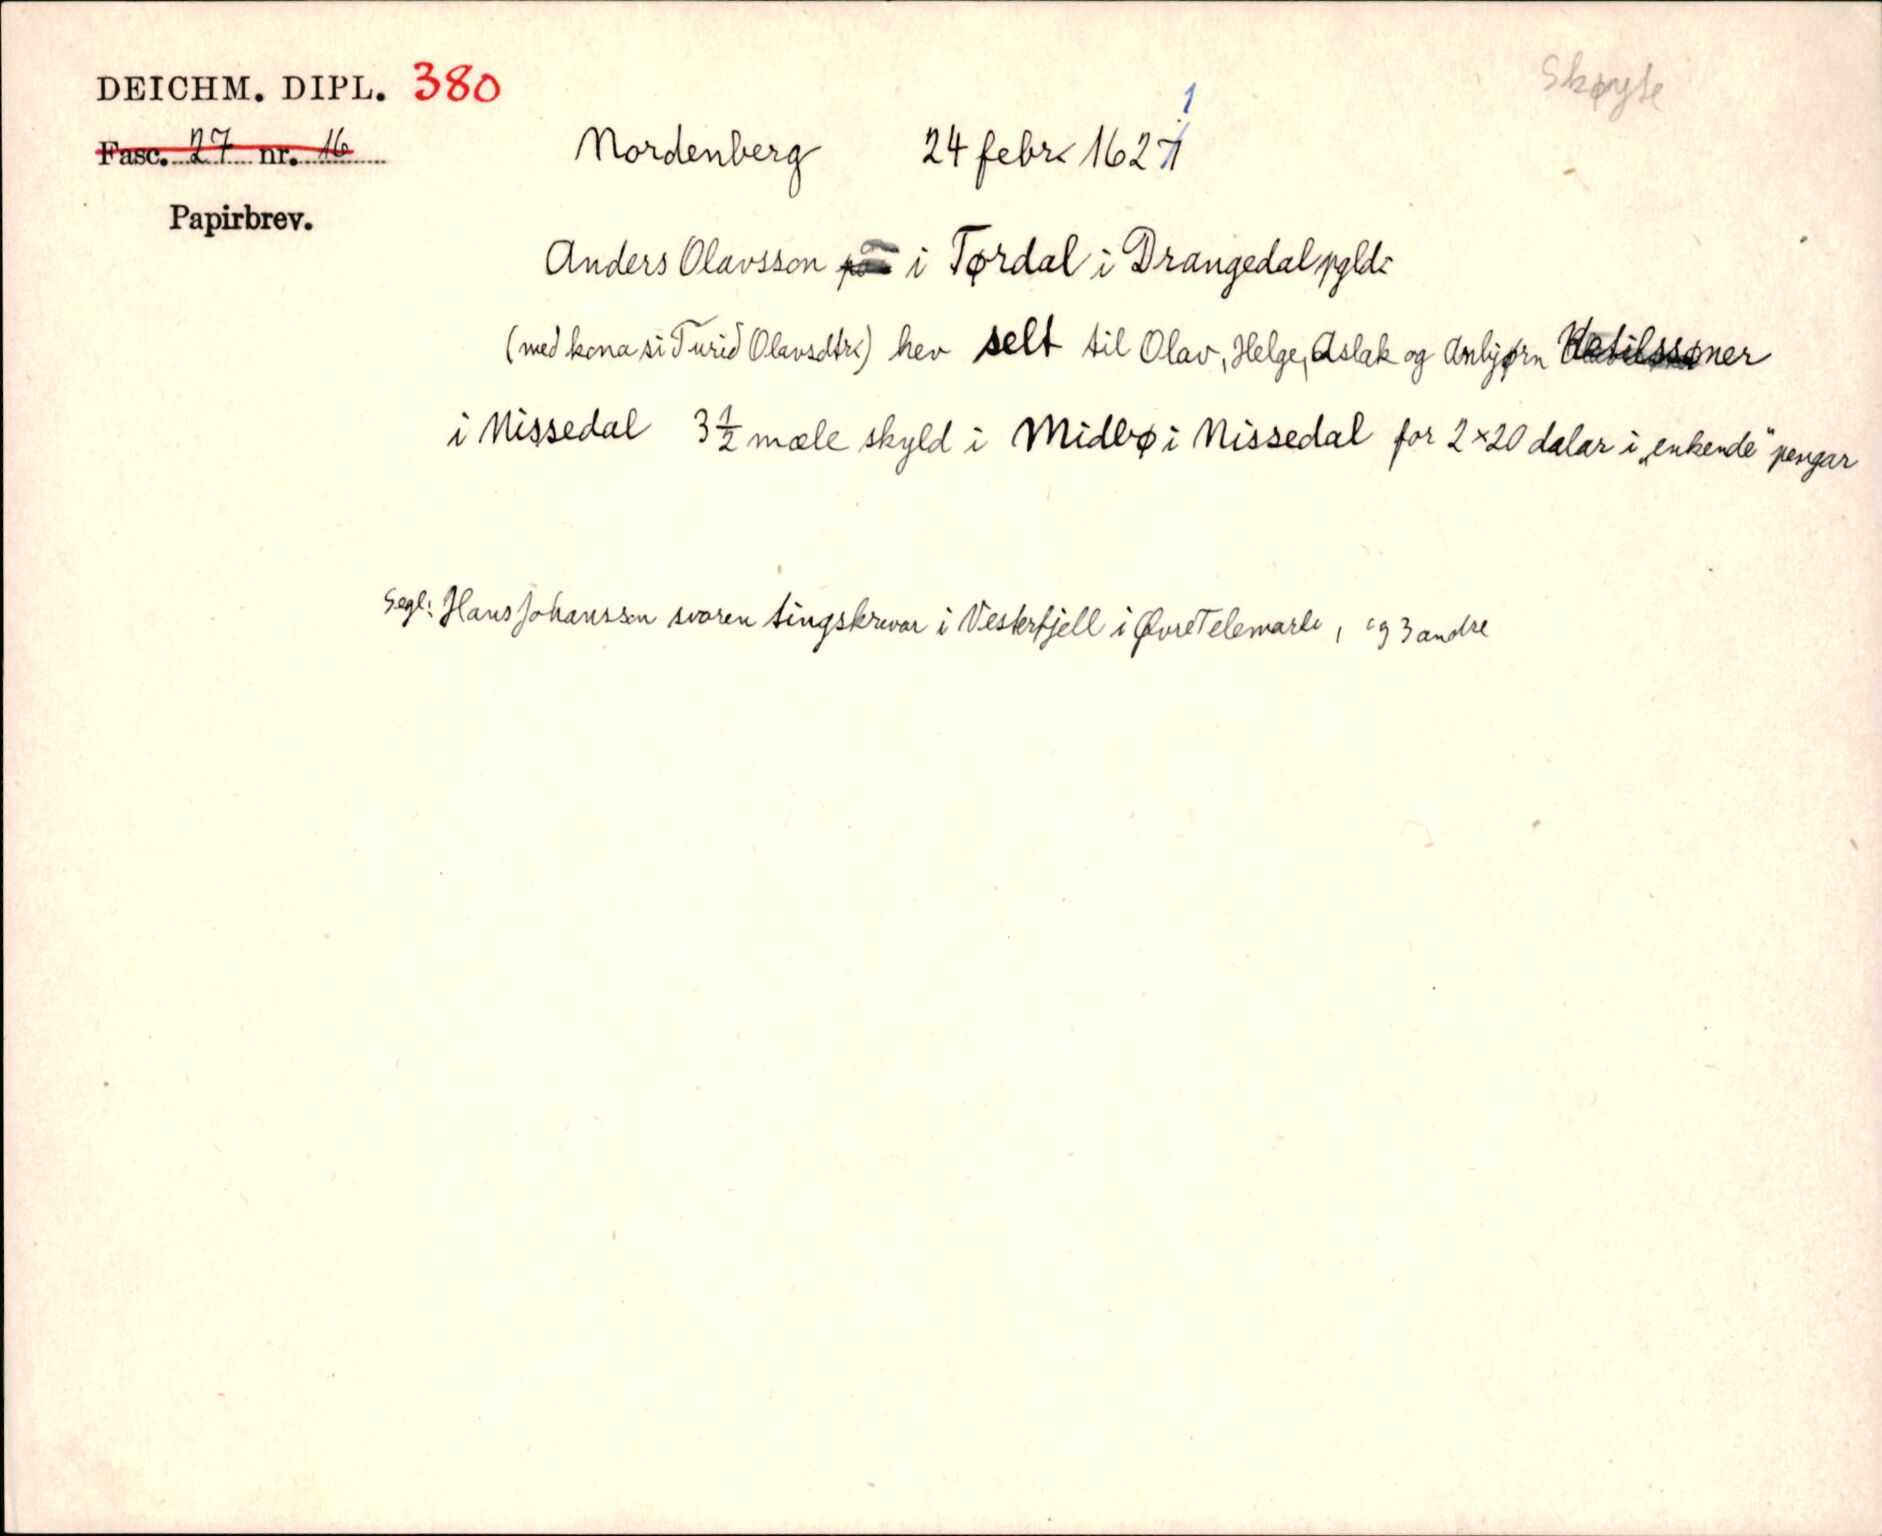 DEICHM. DIPL. 380
Skøyte
Fasc. 27 nr. 16
Nordenberg 24 febr. 1621
Papirbrev.
Anders Olavsson i Tørdal i Drangedal pgld.
(med kona si Turid Olavsdtr.) hev selt til Olav, Helge, Aslak og Anbjørn Ketilssøner
i Nissedal 3 1/2 mæle skyld i Midbø i Nissedal for 2 x 20 dalar i „enkende" pengar
Segl: Hans Johansson svoren tingskrivar i Vesterfjell i Øvre Telemark, og 3 andre